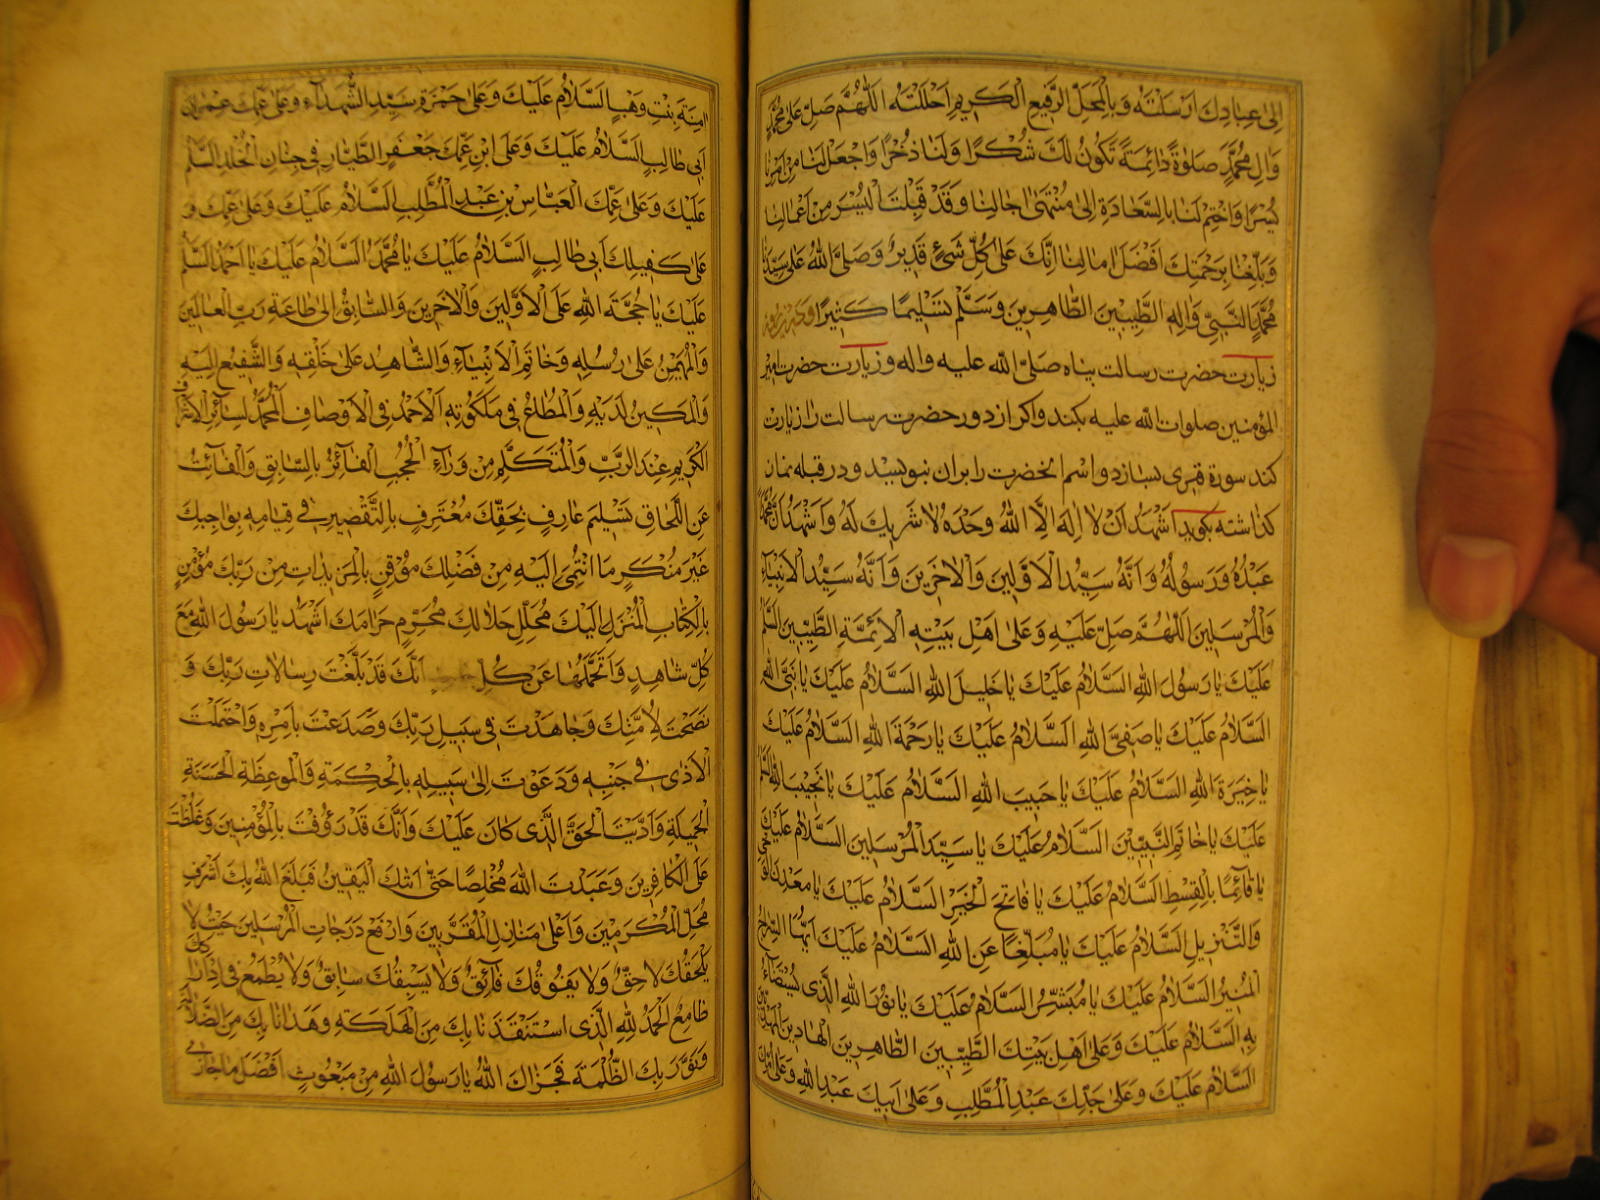 اِلىٰ عِبادِكَ اَرْسَلْتَهُ وَبِالْمَحَلِّ الرَّفيعِ الْكَريمِ اَحْلَلْتَهُ اَللّٰهُمَّ صَلِّ عَلىٰ مُحَمَّدٍ
وَالِ مُحَمَّدٍ صَلوٰةً دٰائِمَةً تَكُونُ لَكَ شُكْرًا وَلَنٰا ذُخْرًا وَاجْعَلْ لَنٰا مِنْ اَمْرِنٰا
يُسْرًا وَاخْتِمْ لَنٰا بِالسَّعٰادَةِ اِلىٰ مُنْتَهىٰ اٰجٰالِنٰا وَقَدْ قَبِلْتَ الْيُسْرَ مِنْ اَعْمٰالِنٰا
وَبَلِّغْنٰا بِرَحْمَتِكَ اَفْضَلَ اٰمٰالِنٰا اِنَّكَ عَلىٰ كُلِّ شَئٍ قَديرٌ وَصَلَّى اللّٰهُ عَلىٰ سَيِّدِنٰا
مُحَمَّدٍ النَّبِيِّ وَالِهِ الطَّيِّبينَ الطّٰاهِرينَ وَسَلَّمَ تَسْليمًا كَثيرًا
زيارت حضرت رسالت پناه صلّى اللّٰه عليه واله و زيارت حضرت امير
المؤمنين صلوات اللّٰه عليه بكند واكر از دور حضرت رسالت را زيارت
كند سورة قبرى بسازد و اسم انحضرت را بران بنويسد و در قبله نمان
كذاشته بكويد اَشْهَدُ اَنْ لاٰ اِلٰهَ اِلاَّ اللّٰهُ وَحْدَهُ لاٰ شَريكَ لَهُ وَاَشْهَدُ اَنَّ مُحَمَّدًا
عَبْدُهُ وَرَسُولُهُ وَاَنَّهُ سَيِّدُ الْاَوَّلينَ وَالْاٰخِرينَ وَاَنَّهُ سَيِّدُ الْاَنْبِيٰآءِ
وَالْمُرْسَلينَ اَللّٰهُمَّ صَلِّ عَلَيْهِ وَعَلىٰ اَهْلِ بَيْتِهِ الْاَئِمَّةِ الطَّيِّبينَ اَلسَّلاٰمُ
عَلَيْكَ يٰا رَسُولَ اللّٰهِ اَلسَّلاٰمُ عَلَيْكَ يٰا خَليلَ اللّٰهِ اَلسَّلاٰمُ عَلَيْكَ يٰا نَبِيَّ اللّٰهِ
اَلسَّلاٰمُ عَلَيْكَ يٰا صَفِيَّ اللّٰهِ اَلسَّلاٰمُ عَلَيْكَ يٰا رَحْمَةَ اللّٰهِ اَلسَّلاٰمُ عَلَيْكَ
يٰا خِيَرَةَ اللّٰهِ اَلسَّلاٰمُ عَلَيْكَ يٰا حَبيبَ اللّٰهِ اَلسَّلاٰمُ عَلَيْكَ يٰا نَجيبَ اللّٰهِ اَلسَّلاٰمُ
عَلَيْكَ يٰا خٰاتَمَ النَّبِيّينَ اَلسَّلاٰمُ عَلَيْكَ يٰا سَيِّدَ الْمُرْسَلينَ اَلسَّلاٰمُ عَلَيْكَ
يٰا قٰآئِمًا بِالْقِسْطِ اَلسَّلاٰمُ عَلَيْكَ يٰا فٰاتِحَ الْخَيْرِ اَلسَّلاٰمُ عَلَيْكَ يٰا مَعْدِنَ الْوَحْيِ
وَالتَّنْزيلِ اَلسَّلاٰمُ عَلَيْكَ يٰا مُبَلِّغًا عَنِ اللّٰهِ اَلسَّلاٰمُ عَلَيْكَ اَيُّهَا السِّرٰاجُ
الْمُنيرُ اَلسَّلاٰمُ عَلَيْكَ يٰا مُبَشِّرُ اَلسَّلاٰمُ عَلَيْكَ يٰا نُورَ اللّٰهِ الَّذى يُسْتَضٰآءُ
بِهِ اَلسَّلاٰمُ عَلَيْكَ وَعَلىٰ اَهْلِ بَيْتِكَ الطَّيِّبينَ الطّٰاهِرينَ الْهٰادينَ الْمَهْدِيّينَ
اَلسَّلاٰمُ عَلَيْكَ وَعَلىٰ جَدِّكَ عَبْدِ الْمُطَّلِبِ وَعَلىٰ اَبيكَ عَبْدِ اللّٰهِ وَعَلىٰ اُمِّكَ
اٰمِنَةَ بِنْتِ وَهَبٍ اَلسَّلاٰمُ عَلَيْكَ وَعَلىٰ حَمْزَةَ سَيِّدِ الشُّهَدٰآءِ وَعَلىٰ عَمِّكَ عِمْرٰانَ
اَبى طٰالِبٍ اَلسَّلاٰمُ عَلَيْكَ وَعَلَى ابْنِ عَمِّكَ جَعْفَرٍ الطَّيّٰارِ فى جِنٰانِ الْخُلْدِ اَلسَّلاٰمُ
عَلَيْكَ وَعَلىٰ عَمِّكَ الْعَبّٰاسِ بْنِ عَبْدِ الْمُطَّلِبِ اَلسَّلاٰمُ عَلَيْكَ وَعَلىٰ عَمِّكَ وَ
عَلىٰ كَفيلِكَ اَبى طٰالِبٍ اَلسَّلاٰمُ عَلَيْكَ يٰا مُحَمَّدُ اَلسَّلاٰمُ عَلَيْكَ يٰا اَحْمَدُ اَلسَّلاٰمُ
عَلَيْكَ يٰا حُجَّةَ اللّٰهِ عَلَى الْاَوَّلينَ وَالْاٰخِرينَ وَالسّٰابِقُ اِلىٰ طٰاعَةِ رَبِّ الْعٰالَمينَ
وَالْمُهَيْمِنُ عَلىٰ رُسُلِهِ وَخٰاتَمُ الْاَنْبِيٰآءِ وَالشّٰاهِدُ عَلىٰ خَلْقِهِ وَالشَّفيعُ اِلَيْهِ
وَالْمَكينُ لَدَيْهِ وَالْمُطٰاعُ فى مَلَكُوتِهِ الْاَحْمَدُ فِى الْاَوْصٰافِ الْمُحَمَّدُ لِسٰائِرِ الْاَشْرٰافِ
الْكَريمُ عِنْدَ الرَّبِّ وَالْمُتَكَلَّمُ مِنْ وَرٰآءِ الْحُجُبِ الْفٰآئِزُ بِالسِّبٰاقِ وَالْفٰآئِتُ
عَنِ اللَّحٰاقِ تَسْليمَ عٰارِفٍ بِحَقِّكَ مُعْتَرِفٍ بِالتَّقْصيرِ فى قِيٰامِهِ بِوٰاجِبِكَ
غَيْرِ مُنْكِرٍ مَا انْتَهىٰ اِلَيْهِ مِنْ فَضْلِكَ مُوقِنٍ بِالْمَزيدٰاتِ مِنْ رَبِّكَ مُؤْمِنٍ
بِالْكِتٰابِ الْمُنْزَلِ اِلَيْكَ مُحَلِّلٍ حَلاٰلَكَ مُحَرِّمٍ حَرٰامَكَ اَشْهَدُ يٰا رَسُولَ اللّٰهِ مَعَ
كُلِّ شٰاهِدٍ وَاَتَحَمَّلُهٰا عَنْ كُلِّ اَنَّكَ قَدْ بَلَّغْتَ رِسٰالاٰتِ رَبِّكَ وَ
نَصَحْتَ لِاُمَّتِكَ وَجٰاهَدْتَ فى سَبيلِ رَبِّكَ وَصَدَعْتَ بِاَمْرِهِ وَاحْتَمَلْتَ
الْاَذىٰ فى جَنْبِهِ وَدَعَوْتَ اِلىٰ سَبيلِهِ بِالْحِكْمَةِ وَالْمَوْعِظَةِ الْحَسَنَةِ
الْجَميلَةِ وَاَدَّيْتَ الْحَقَّ الَّذى كٰانَ عَلَيْكَ وَاَنَّكَ قَدْ رَؤُفْتَ بِالْمُؤْمِنينَ وَغَلُظْتَ
عَلَى الْكٰافِرينَ وَعَبَدْتَ اللّٰهَ مُخْلِصًا حَتّىٰ اَتٰيكَ الْيَقينُ فَبَلَغَ اللّٰهُ بِكَ اَشْرَفَ
مَحَلِّ الْمُكْرَمينَ وَاَعْلىٰ مَنٰازِلِ الْمُقَرَّبينَ وَاَرْفَعَ دَرَجٰاتِ الْمُرْسَلينَ حَيْثُ لاٰ
يَلْحَقُكَ لاٰحِقٌ وَلاٰ يَفُوقُكَ فٰآئِقٌ وَلاٰ يَسْبِقُكَ سٰابِقٌ وَلاٰ يَطْمَعُ فى اِدْرٰاكِكَ
طٰامِعٌ اَلْحَمْدُ لِلّٰهِ الَّذى اسْتَنْقَذَنٰا بِكَ مِنَ الْهَلَكَةِ وَهَدٰانٰا بِكَ مِنَ الضَّلاٰلَةِ
وَنَوَّرَ بِكَ الظُّلْمَةَ فَجَزٰاكَ اللّٰهُ يٰا رَسُولَ اللّٰهِ مِنْ مَبْعُوثٍ اَفْضَلَ مٰا جٰازىٰ